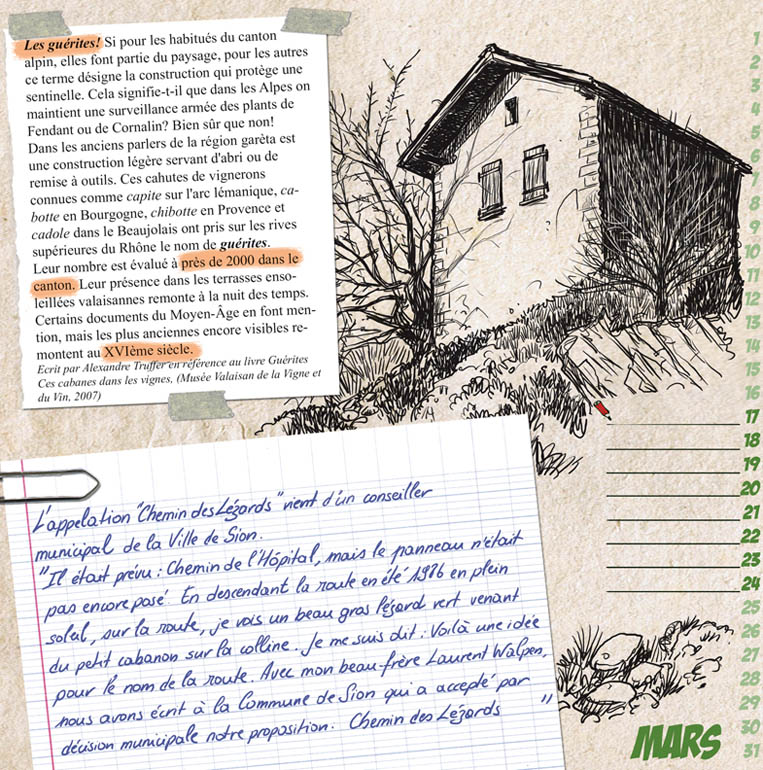 Les guérites! Si pour les habitués du canton
alpin, elles font partie du paysage, pour les autres
ce terme désigne la construction qui protège une
sentinelle. Cela signifie-t-il que dans les Alpes on
maintient une surveillance armée des plants de
Fendant ou de Cornalin? Bien sûr que non!
Dans les anciens parlers de la région garèta est
une construction légère servant d'abri ou de
remise à outils. Ces cahutes de vignerons
connues comme capite sur l'arc lémanique, ca-
botte en Bourgogne, chibotte en Provence et
cadole dans le Beaujolais ont pris sur les rives
supérieures du Rhône le nom de guérites.
Leur nombre est évalué à près de 2000 dans le
canton. Leur présence dans les terrasses enso-
leillées valaisannes remonte à la nuit des temps.
Certains documents du Moyen-Âge en font men-
tion, mais les plus anciennes encore visibles re-
montent au XVIème siècle.
Ecrit par Alexandre Truffer en référence au livre Guérites
Ces cabanes dans les vignes, (Musée Valaisan de la Vigne et
du Vin, 2007)
L'appelation "Chemin des Lézards" vient d'un conseiller
municipal de la Ville de Sion.
"Il était prévu : Chemin de l'Hôpital, mais le panneau n'était
pas encore posé. En descendant la route en été 1986 en plein
soleil, sur la route, je vois un beau gros lézard vert venant
du petit cabanon sur la colline. Je me suis dit : Voilà une idée
pour le nom de la route. Avec mon beau-frère Laurent Walpen,
nous avons écrit à la Commune de Sion qui a accepté par
décision municipale notre proposition: Chemin des Lézards "
1
2
3
4
5
6
7
8
9
10
11
12
13
14
15
16
17
18
19
20
21
22
23
24
25
26
27
28
29
30
31
MARS